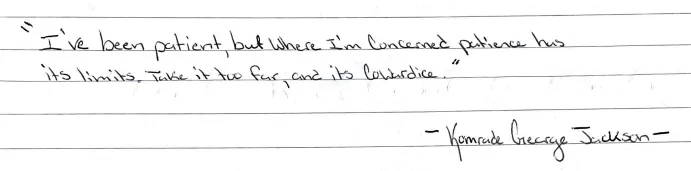 "I've been patient, but where I'm Concerned patience has
its limits. Take it too far, and its Cowardice."
- Komrade George Jackson -